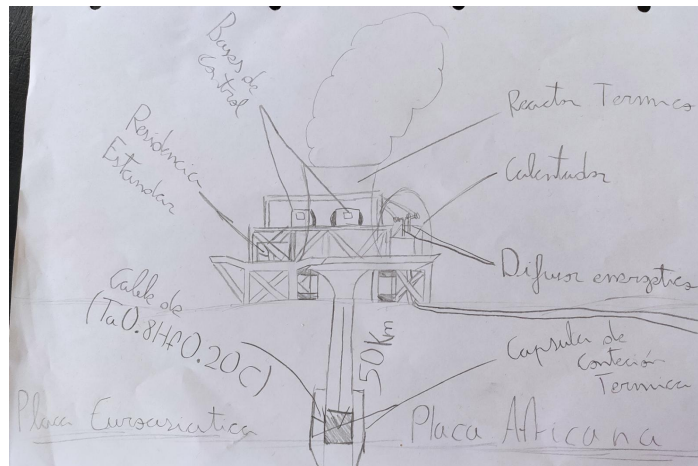 Bases de
Control
Reactor Termico
Residencia
Estandar
Calentador
Difusor energetico
Cable de
(Ta0.8Hf0.20C)
50Km
Capsula de
conteción
Termica
Placa Euroasiatica
Placa Africana